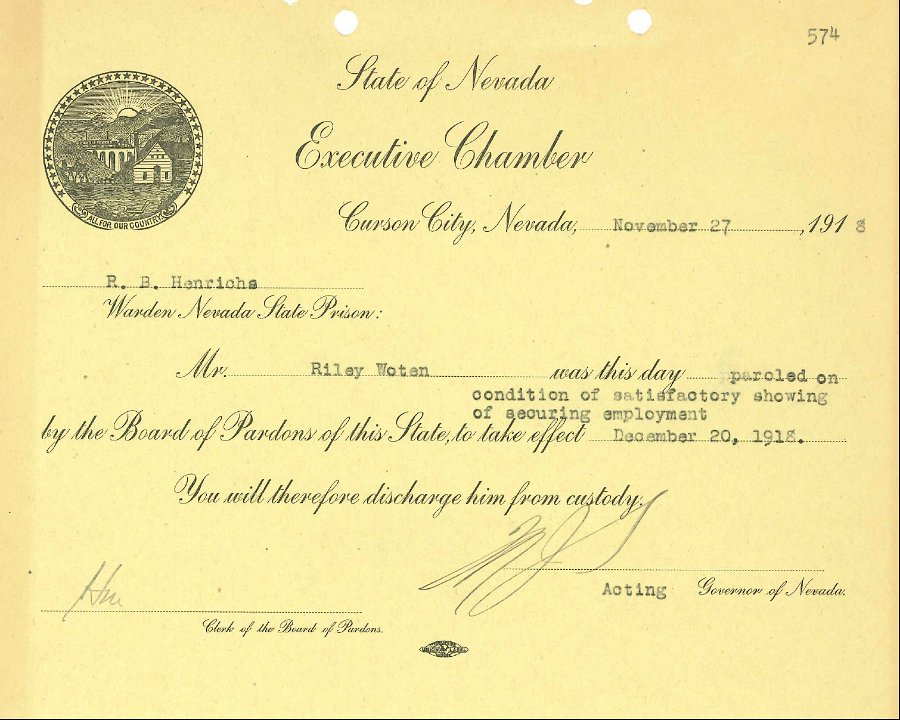 574
State of Nevada
Executive Chamber
Carson City, Nevada, November 27, 1918
R. B. Henrichs
Warden Nevada State Prison:
Mr. Riley Woten was this day paroled on
condition of satisfactory showing
of securing employment
by the Board of Pardons of this State, to take effect December 20, 1918.
You will therefore discharge him from custody.
Acting Governor of Nevada.
Clerk of the Board of Pardons.
ALL FOR OUR COUNTRY